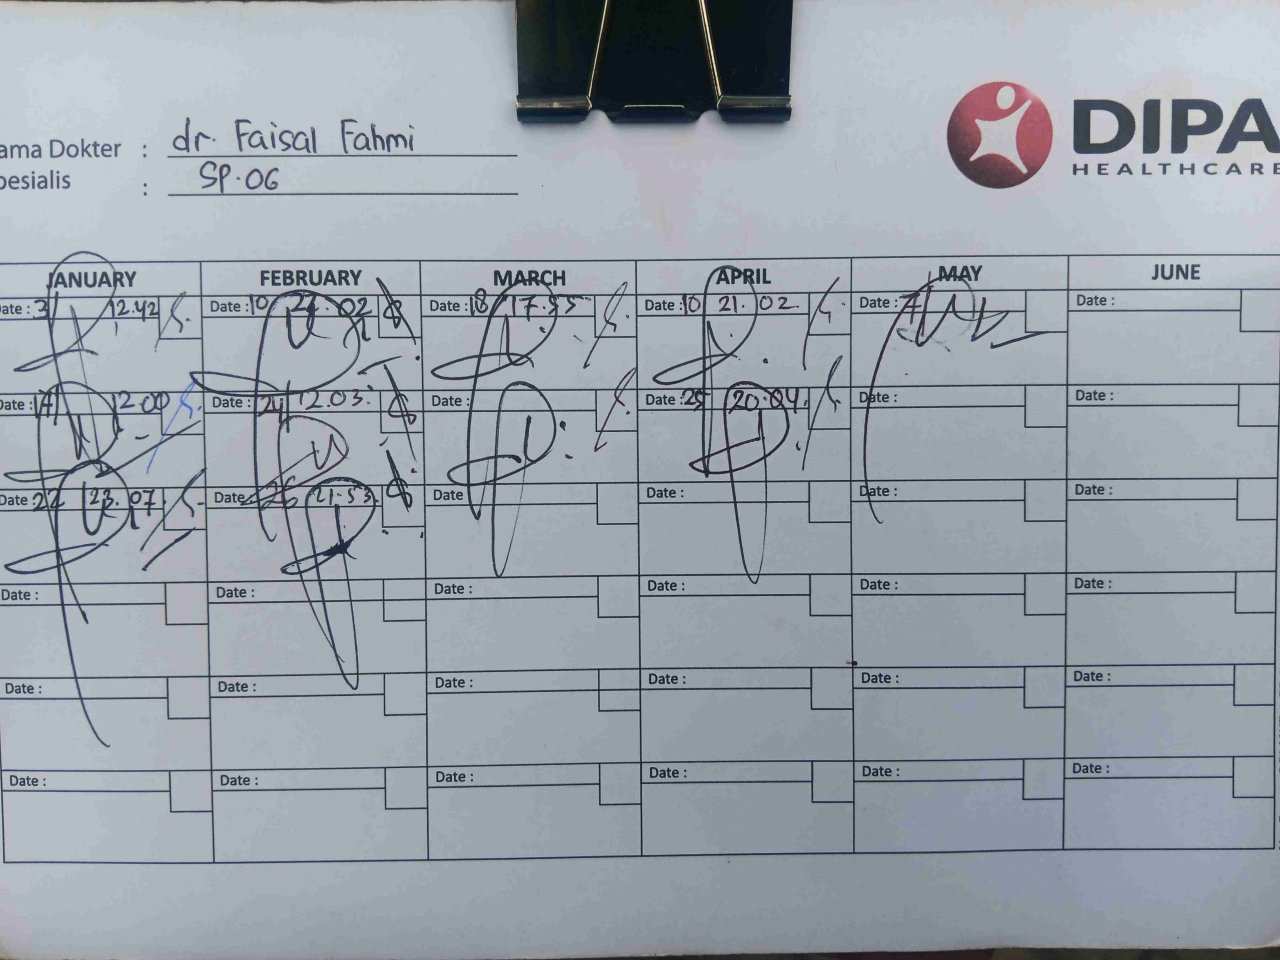 ama Dokter : dr. Faisal Fahmi
pesialis : SP.OG
DIPA
HEALTHCARE
JANUARY FEBRUARY MARCH APRIL MAY JUNE
ate : 3 12.42 Date : 10 21.02 Date : 18 17.55 Date : 10 21.02. Date : 7 Date :
Date : 17 12.00 Date : 24 12.03. Date : Date : 25 20.04. Date : Date :
Date 22 23.07 Date : 26 21.53. Date Date : Date : Date :
Date : Date : Date : Date : Date : Date :
Date : Date : Date : Date : Date : Date :
Date : Date : Date : Date : Date : Date :